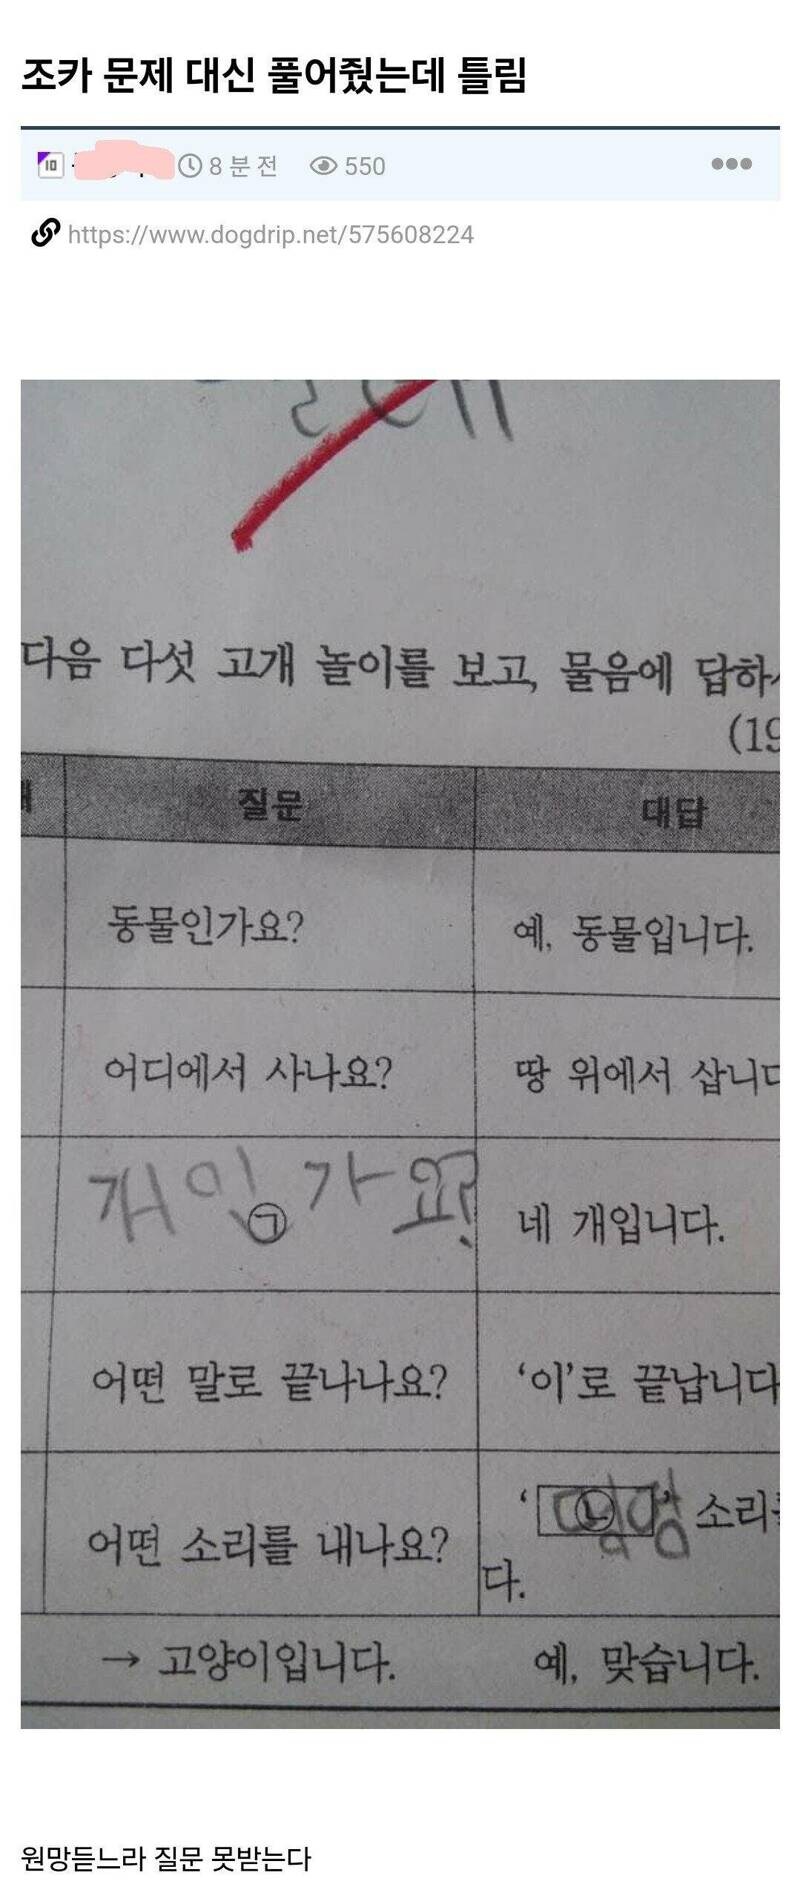 조카 문제 대신 풀어줬는데 틀림
10
8 분 전
550
https://www.dogdrip.net/575608224
다음 다섯 고개 놀이를 보고, 물음에 답하
(19
질문 대답
동물인가요? 예, 동물입니다.
어디에서 사나요? 땅 위에서 삽니다
개인가요? ㉠ 네 개입니다.
어떤 말로 끝나나요? ‘이’로 끝납니다
어떤 소리를 내나요? ‘㉡ 멍멍’ 소리를
다.
→ 고양이입니다. 예, 맞습니다.
원망듣느라 질문 못받는다